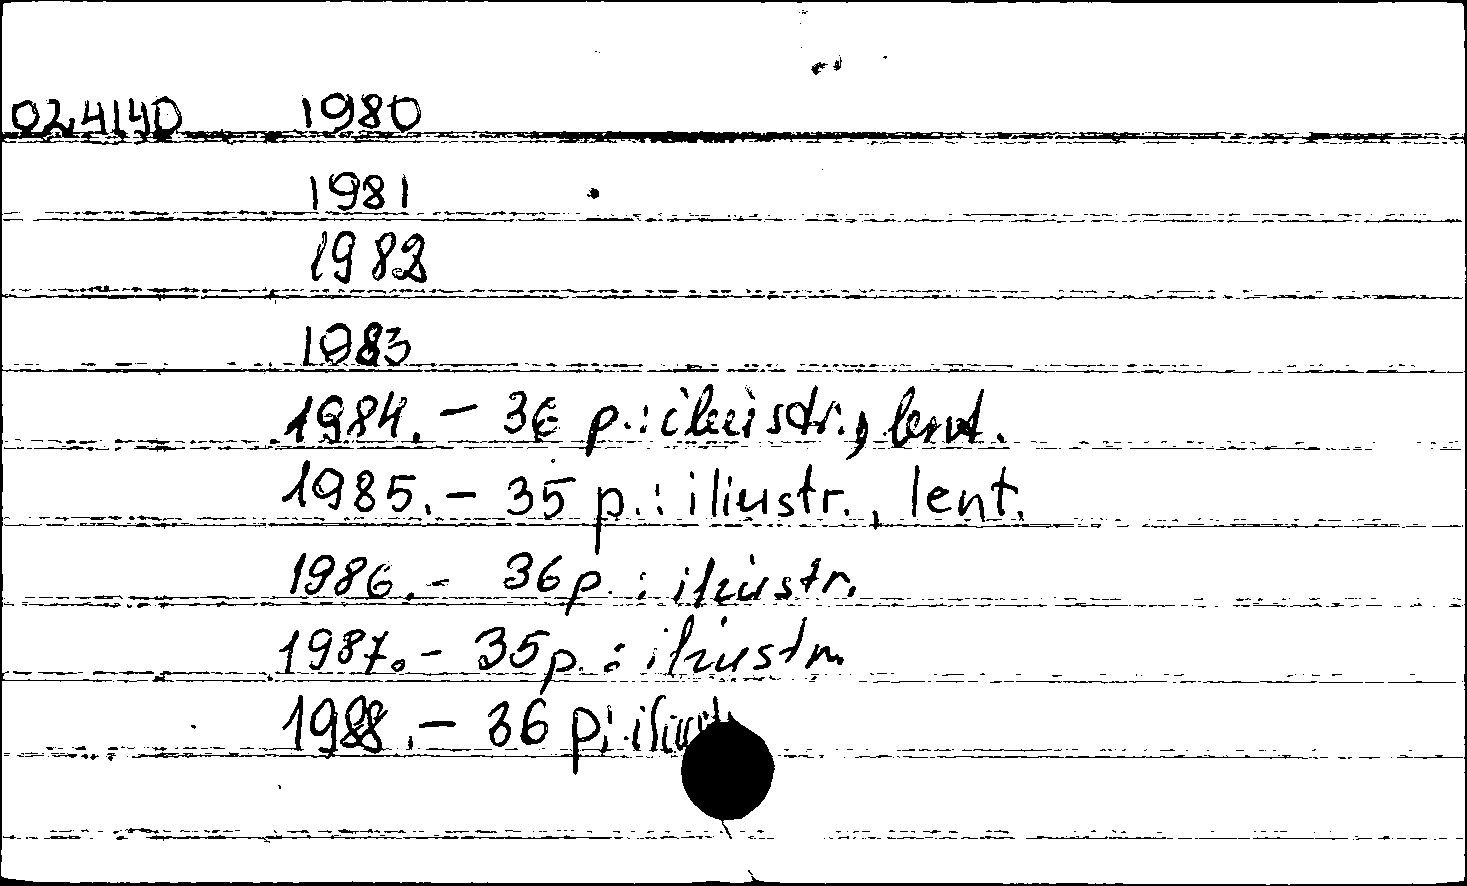 024140 1980
1981
1982
1983
1984. - 36 p.: iliustr., lent.
1985. - 35 p.: iliustr., lent.
1986. - 36 p. : iliustr.
1987. - 35 p. : iliustr.
1988. - 36 p: